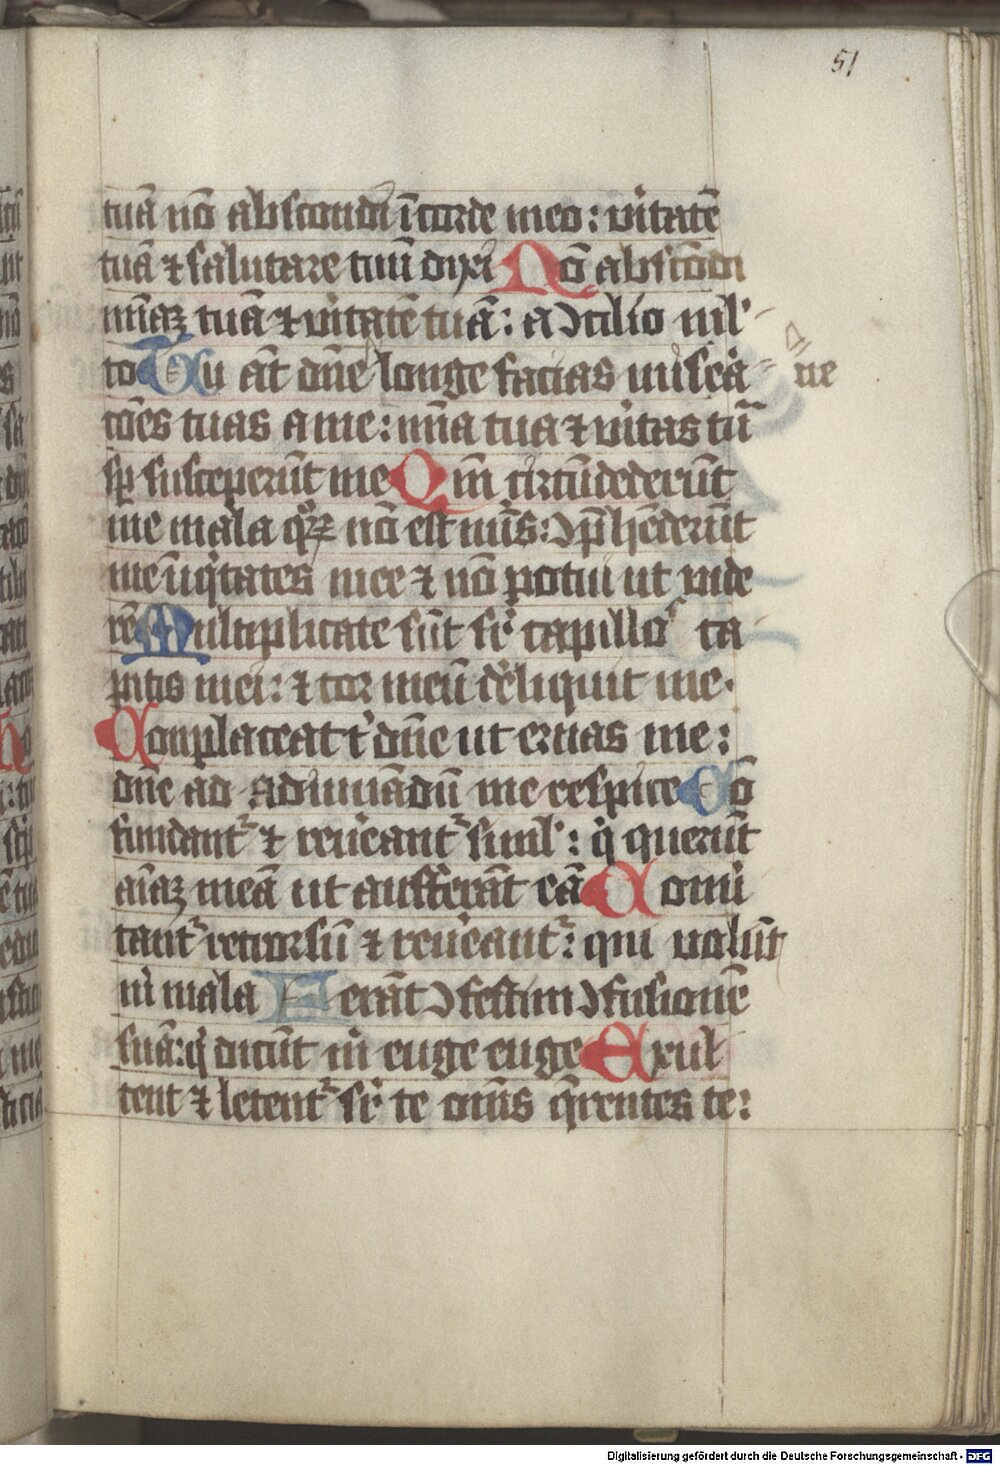 51
tuā nō abscondi ī corde meo: v̾itatē
tuā ⁊ salutare tuū dixi Nō abscōdi
mīaꝫ tuā ⁊ v̾itatē tuā: a ꝯcilio ml'
to Tu āt dn̄e longe facias misera
ne
cōes tuas a me: mīa tua ⁊ v̾itas tua
sp̄ susceperūt me Qm̄ circūdederūt
me mala qͦꝝ nō est nūs: ꝯp̄hēderūt
me iīqͥtates mee ⁊ nō potui ut vide
rē Multiplicate sūt sr̄ capillos ca
pitis mei: ⁊ cor meū d̾eliquit me.
Complaceat t̾ dn̄e ut eruas me:
dn̄e ad adiuuādū me respice Cō
fundant͛ ⁊ reu̾eant͛ siml': qͥ querūt
aīaꝫ meā ut aufferāt eā Conu̾
tant͛ retrorsū ⁊ reu̾eant͛: qui uolūt
m̾ mala Ferāt ꝯfestim ꝯfusionē
suā: qͥ dicūt m̾ euge euge Exul
tent ⁊ letent͛ sr̄ te om̄s q̄rentes te:
Digitalisierung gefördert durch die Deutsche Forschungsgemeinschaft - DFG